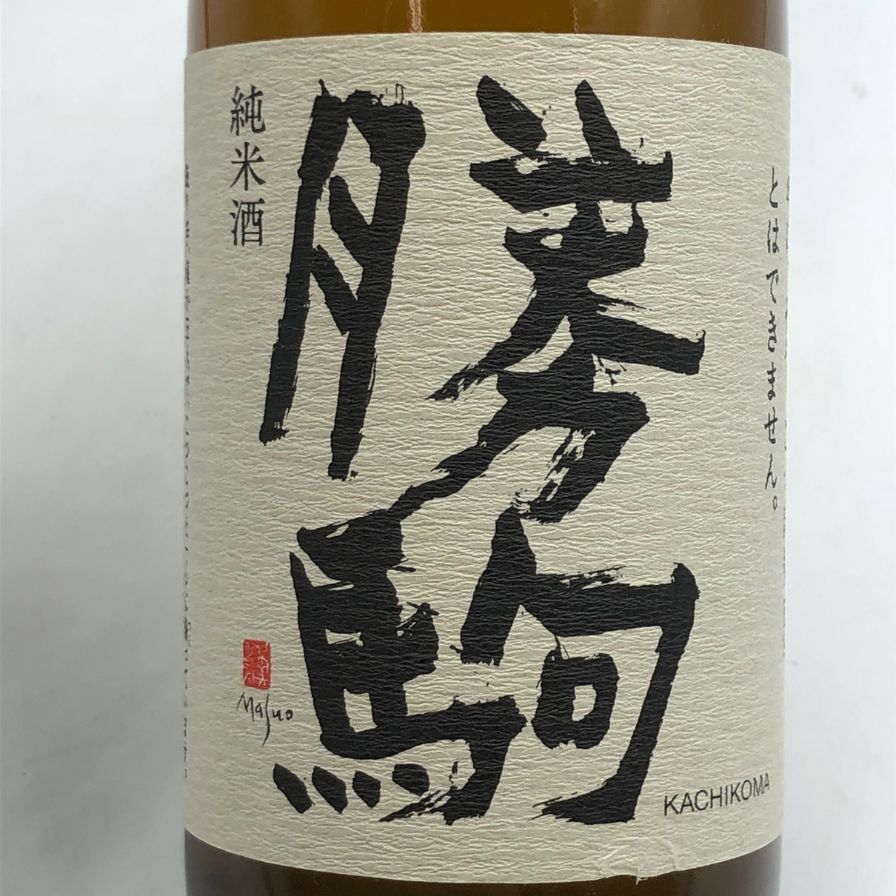 とはできません。
勝駒
純米酒
Masuo
KACHIKOMA